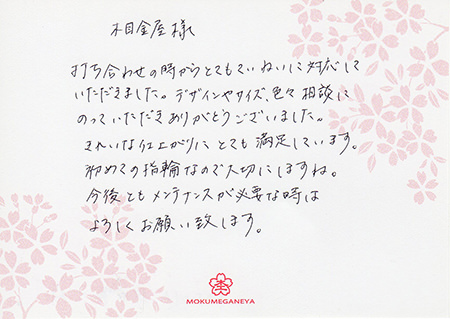 木目金屋 様
打ち合わせの時からとてもていねいに対応して
いただきました。デザインやサイズ、色々相談に
のっていただきありがとうございました。
きれいな仕上がりにとても満足しています。
初めての指輪なので大切にしますね。
今後ともメンテナンスが必要な時は
よろしくお願い致します。
MOKUMEGANEYA